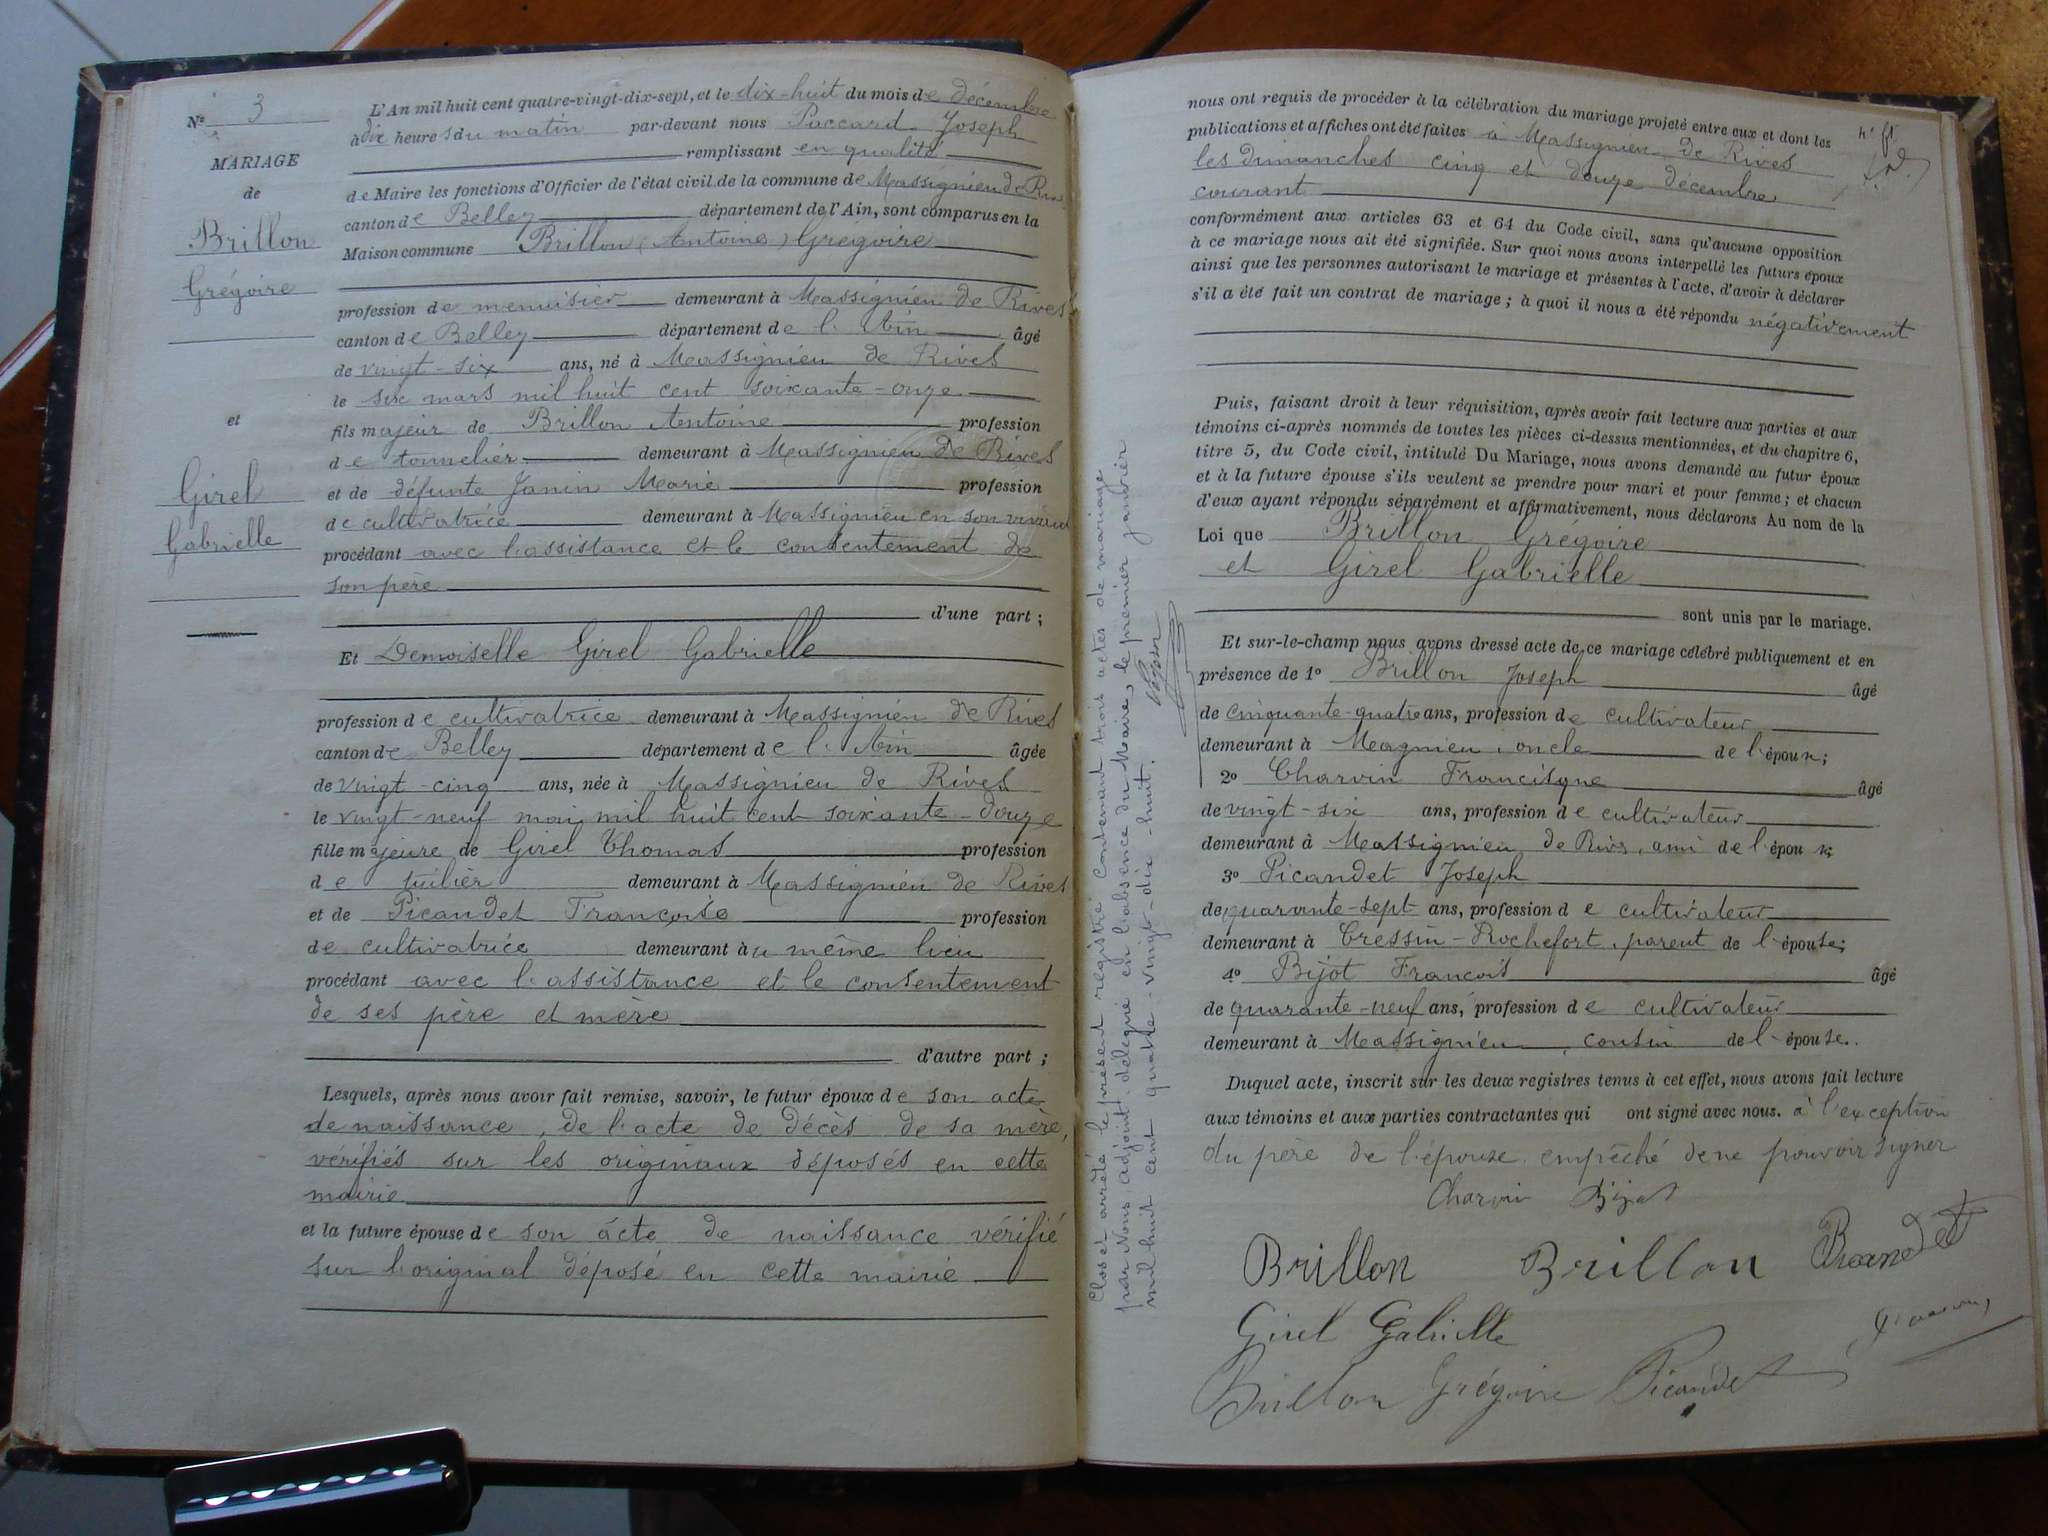 N° 3
MARIAGE
de
Brillon
Grégoire
et
Girel
Gabrielle
L'An mil huit cent quatre-vingt-dix-sept, et le dix-huit du mois de décembre
à dix heures du matin par-devant nous Puccard Joseph
remplissant en qualité
de Maire les fonctions d'Officier de l'état civil de la commune de Massignieu de Rives
canton de Belley département de l'Ain, sont comparus en la
Maison commune Brillon (Antoine) Grégoire
profession de menuisier demeurant à Massignieu de Rives
canton de Belley département de l'Ain âgé
de vingt-six ans, né à Massignieu de Rives
le six mars mil huit cent soixante-onze
fils majeur de Brillon Antoine profession
de tonnelier demeurant à Massignieu de Rives
et de défunte Janin Marie profession
de cultivatrice demeurant à Massignieu en son vivant
procédant avec l'assistance et le consentement de
son père
d'une part ;
Et Demoiselle Girel Gabrielle
profession de cultivatrice demeurant à Massignieu de Rives
canton de Belley département de l'Ain âgée
de vingt-cinq ans, née à Massignieu de Rives
le vingt-neuf mai mil huit cent soixante-douze
fille majeure de Girel Thomas profession
de tuilier demeurant à Massignieu de Rives
et de Picandet Françoise profession
de cultivatrice demeurant au même lieu
procédant avec l'assistance et le consentement
de ses père et mère
d'autre part ;
Lesquels, après nous avoir fait remise, savoir, le futur époux de son acte
de naissance, de l'acte de décès de sa mère,
vérifiés sur les originaux déposés en cette
mairie
et la future épouse de son acte de naissance vérifié
sur l'original déposé en cette mairie
Clos et arrêté le présent registre contenant trois actes de mariage
par Nous, adjoint délégué en l'absence du Maire, le premier janvier
mil huit cent quatre-vingt-dix-huit.
nous ont requis de procéder à la célébration du mariage projeté entre eux et dont les
publications et affiches ont été faites à Massignieu de Rives
les dimanches cinq et douze décembre
courant
conformément aux articles 63 et 64 du Code civil, sans qu'aucune opposition
à ce mariage nous ait été signifiée. Sur quoi nous avons interpellé les futurs époux
ainsi que les personnes autorisant le mariage et présentes à l'acte, d'avoir à déclarer
s'il a été fait un contrat de mariage ; à quoi il nous a été répondu négativement
Puis, faisant droit à leur réquisition, après avoir fait lecture aux parties et aux
témoins ci-après nommés de toutes les pièces ci-dessus mentionnées, et du chapitre 6,
titre 5, du Code civil, intitulé Du Mariage, nous avons demandé au futur époux
et à la future épouse s'ils veulent se prendre pour mari et pour femme ; et chacun
d'eux ayant répondu séparément et affirmativement, nous déclarons Au nom de la
Loi que Brillon Grégoire
et Girel Gabrielle
sont unis par le mariage.
Et sur-le-champ nous avons dressé acte de ce mariage célébré publiquement et en
présence de 1° Brillon Joseph âgé
de cinquante-quatre ans, profession de cultivateur
demeurant à Magnieu, oncle de l'époux ;
2° Charvin Francisque âgé
de vingt-six ans, profession de cultivateur
demeurant à Massignieu de Rives, ami de l'époux ;
3° Picandet Joseph
de quarante-sept ans, profession de cultivateur
demeurant à Cressin-Rochefort, parent de l'épouse ;
4° Bijot François âgé
de quarante-neuf ans, profession de cultivateur
demeurant à Massignieu, cousin de l'épouse.
Duquel acte, inscrit sur les deux registres tenus à cet effet, nous avons fait lecture
aux témoins et aux parties contractantes qui ont signé avec nous. à l'exception
du père de l'épouse empêché de ne pouvoir signer
Charvin Bijot
Brillon Brillon Picandet
Girel Gabrielle
Brillon Grégoire Picandet